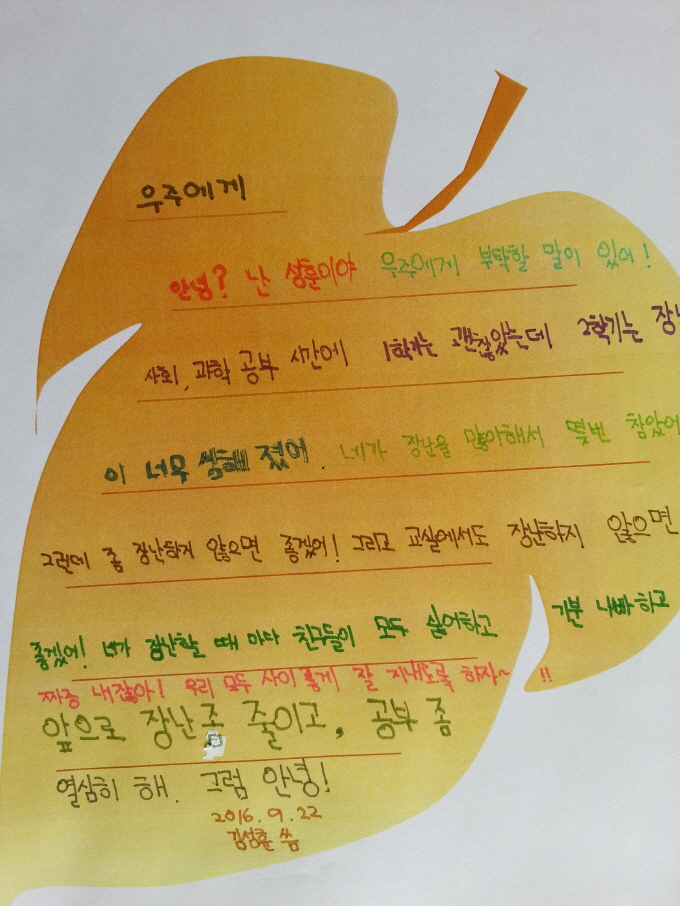 우주에게
안녕? 난 성훈이야 우주에게 부탁할 말이 있어!
사회, 과학 공부 시간에 1학기는 괜찮았는데 2학기는 장난
이 너무 심해 졌어. 네가 장난을 많아해서 몇번 참았어
그런데 좀 장난하지 않으면 좋겠어! 그리고 교실에서도 장난하지 않으면
좋겠어! 네가 장난할 때 마다 친구들이 모두 싫어하고 기분 나빠하고
짜증 내잖아! 우리 모두 사이좋게 잘 지내도록 하자~ !!
앞으로 장난 좀 줄이고, 공부 좀
열심히 해. 그럼 안녕!
2016. 9. 22
김성훈 씀